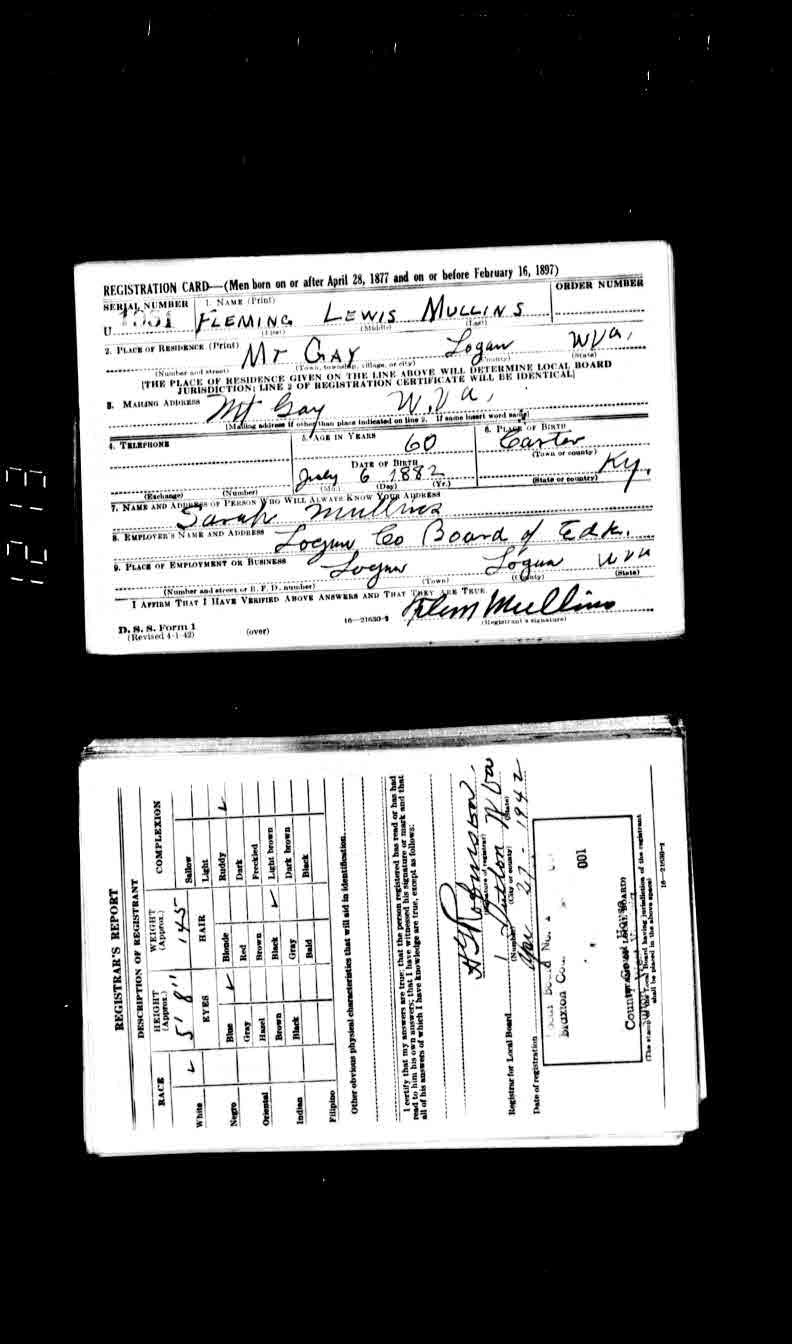 REGISTRATION CARD—(Men born on or after April 28, 1877 and on or before February 16, 1897)
SERIAL NUMBER 1. NAME (Print) ORDER NUMBER
U FLEMING LEWIS MULLINS
(First) (Middle) (Last)
2. PLACE OF RESIDENCE (Print)
MT GAY Logan WVa.
(Number and street) (Town, township, village, or city) (County) (State)
[THE PLACE OF RESIDENCE GIVEN ON THE LINE ABOVE WILL DETERMINE LOCAL BOARD
JURISDICTION; LINE 2 OF REGISTRATION CERTIFICATE WILL BE IDENTICAL]
3. MAILING ADDRESS
Mt Gay W.Va.
[Mailing address if other than place indicated on line 2. If same insert word same]
4. TELEPHONE 5. AGE IN YEARS 6. PLACE OF BIRTH
60 Carter
DATE OF BIRTH (Town or county)
July 6 1882 Ky.
(Exchange) (Number) (Mo.) (Day) (Yr.) (State or country)
7. NAME AND ADDRESS OF PERSON WHO WILL ALWAYS KNOW YOUR ADDRESS
Sarah Mullins
8. EMPLOYER'S NAME AND ADDRESS
Logan Co Board of Edk.
9. PLACE OF EMPLOYMENT OR BUSINESS
Logan Logan WVa
(Number and street or R. F. D. number) (Town) (County) (State)
I AFFIRM THAT I HAVE VERIFIED ABOVE ANSWERS AND THAT THEY ARE TRUE.
Flem Mullins
D. S. S. Form 1
(Revised 4-1-42) (over) 16—21630-2 (Registrant's signature)
REGISTRAR'S REPORT
DESCRIPTION OF REGISTRANT
RACE HEIGHT (Approx.) WEIGHT (Approx.) COMPLEXION
5' 8" 145
EYES HAIR
White Blue Blonde Sallow
Gray Red Light
Negro Hazel Brown Ruddy
Brown Black Dark
Oriental Black Gray Freckled
Bald Light brown
Indian Dark brown
Black
Filipino
Other obvious physical characteristics that will aid in identification
I certify that my answers are true; that the person registered has read or has had
read to him his own answers; that I have witnessed his signature or mark and that
all of his answers of which I have knowledge are true, except as follows:
(Signature of registrar)
Registrar for Local Board 1 Sutton W Va
(Number) (City or county) (State)
Date of registration Apr 27 - 1942
Braxton
001
(The stamp of the Local Board having jurisdiction of the registrant
shall be placed in the above space)